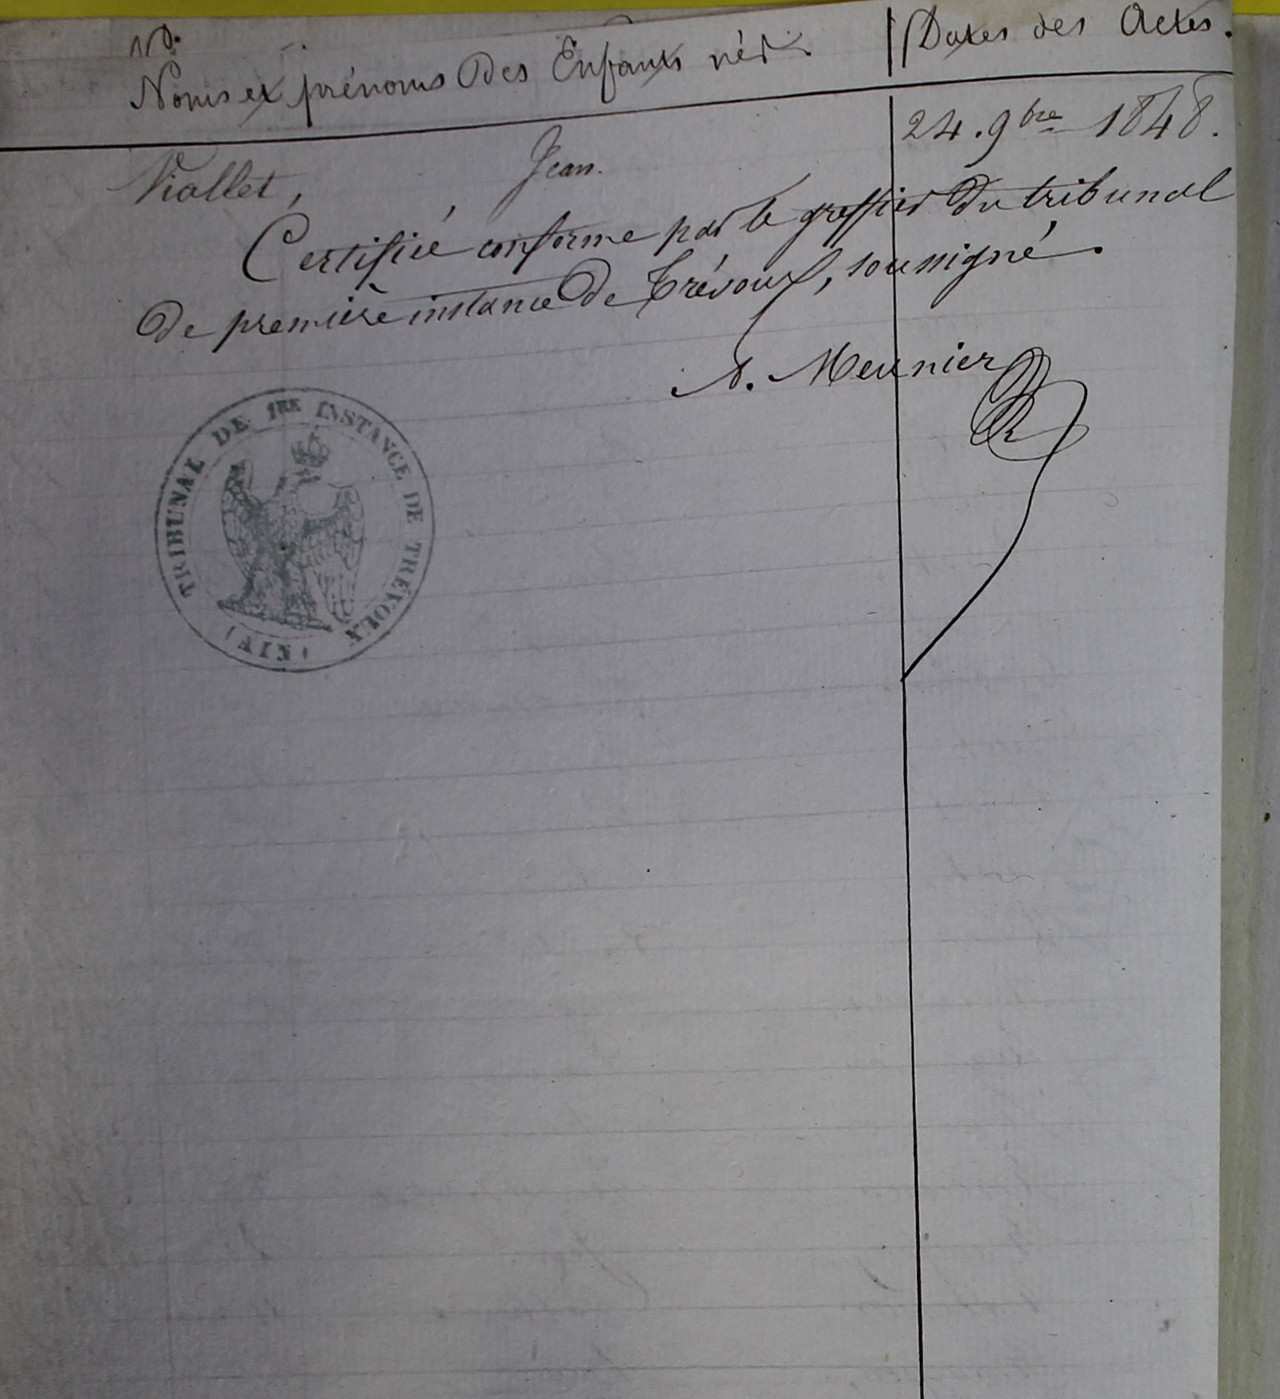 Nd.
Noms et prénoms des Enfants nés. Dates des Actes.
Viallet, Jean. 24. 9bre 1848.
Certifié conforme par le greffier du tribunal
de première instance de Trévoux, soussigné.
A. Meunier
TRIBUNAL DE 1RE INSTANCE DE TRÉVOUX
(AIN)